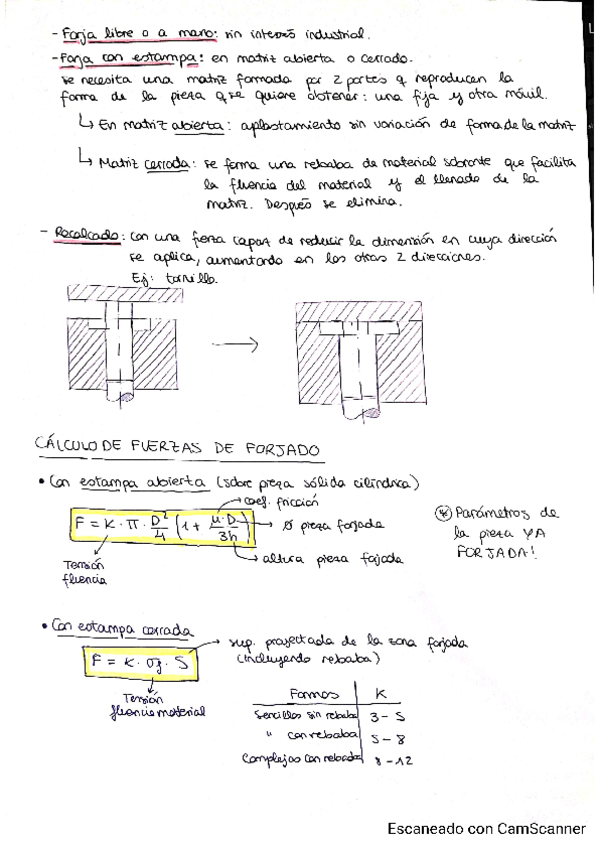 - Forja libre o a mano: sin interés industrial.
- Forja con estampa: en matriz abierta o cerrada.
se necesita una matriz formada por 2 partes q reproducen la
forma de la pieza q se quiere obtener: una fija y otra móvil.
↳ En matriz abierta: aplastamiento sin variación de forma de la matriz
↳ Matriz cerrada: se forma una rebaba de material sobrante que facilita
la fluencia del material y el llenado de la
matriz. Después se elimina.
- Recalcado: con una fuerza capaz de reducir la dimensión en cuya dirección
se aplica, aumentando en las otras 2 direcciones.
Ej: tornillo.
CÁLCULO DE FUERZAS DE FORJADO
• Con estampa abierta (sobre pieza sólida cilíndrica)
→ coef. fricción
F = K · π · D²/4 (1 + μ·D/3h) → Ø pieza forjada
→ altura pieza forjada
Tensión
fluencia
* Parámetros de
la pieza YA
FORJADA!
• Con estampa cerrada
F = K · σf · S → sup. proyectada de la zona forjada
(incluyendo rebaba)
Tensión
fluencia material
Formas K
Sencillas sin rebaba 3 - 5
" con rebaba 5 - 8
Complejas con rebaba 8 - 12
Escaneado con CamScanner